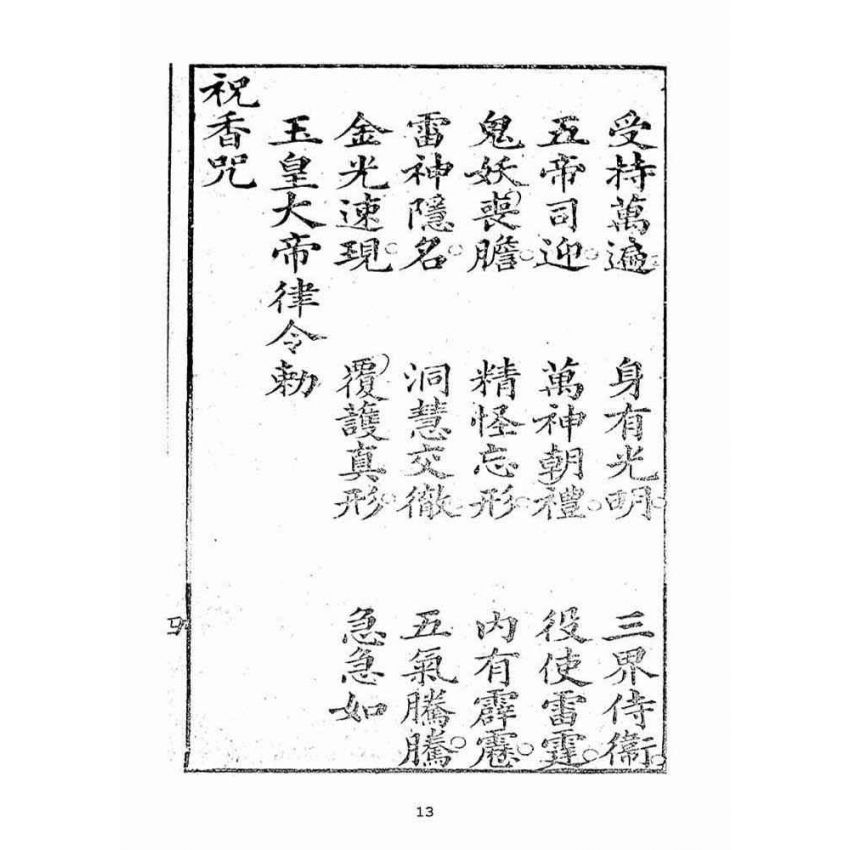 受持萬遍。身有光明。三界侍衛。
五帝司迎。萬神朝禮。役使雷霆。
鬼妖喪膽。精怪忘形。內有霹靂。
雷神隱名。洞慧交徹。五氣騰騰。
金光速現。覆護真形。急急如
玉皇大帝律令勅
祝香咒
13